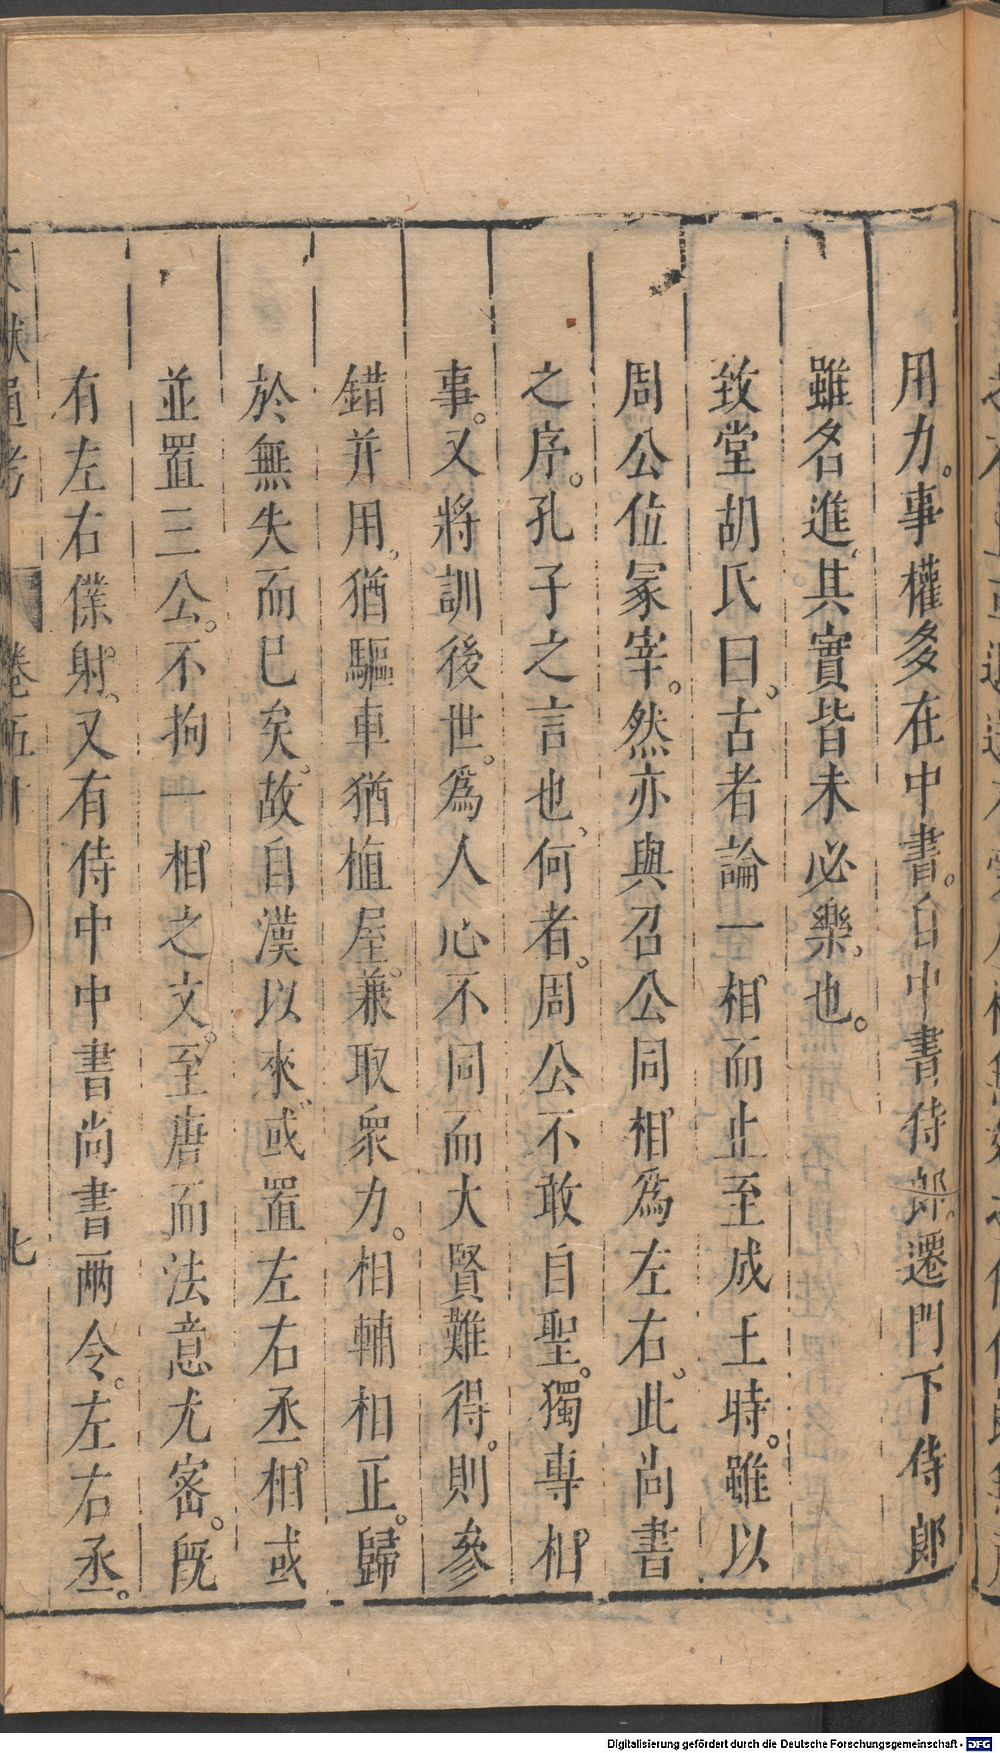 用力。事權多在中書。自中書侍郎。遷門下侍郎
雖名進、其實皆未必樂也。
致堂胡氏曰。古者論一相而止至成王時。雖以
周公位冢宰。然亦與召公同相爲左右。此尚書
之序。孔子之言也、何者。周公不敢自聖。獨專相
事。又將訓後世。爲人心不同而大賢難得。則參
錯并用。猶驅車猶植屋。兼取衆力。相輔相正。歸
於無失而已矣。故自漢以來或置左右丞相或
並置三公。不拘一相之文。至唐而法意尤密。既
有左右僕射。又有侍中中書尚書兩令。左右丞。
文獻通考 卷五十
七
Digitalisierung gefördert durch die Deutsche Forschungsgemeinschaft - DFG